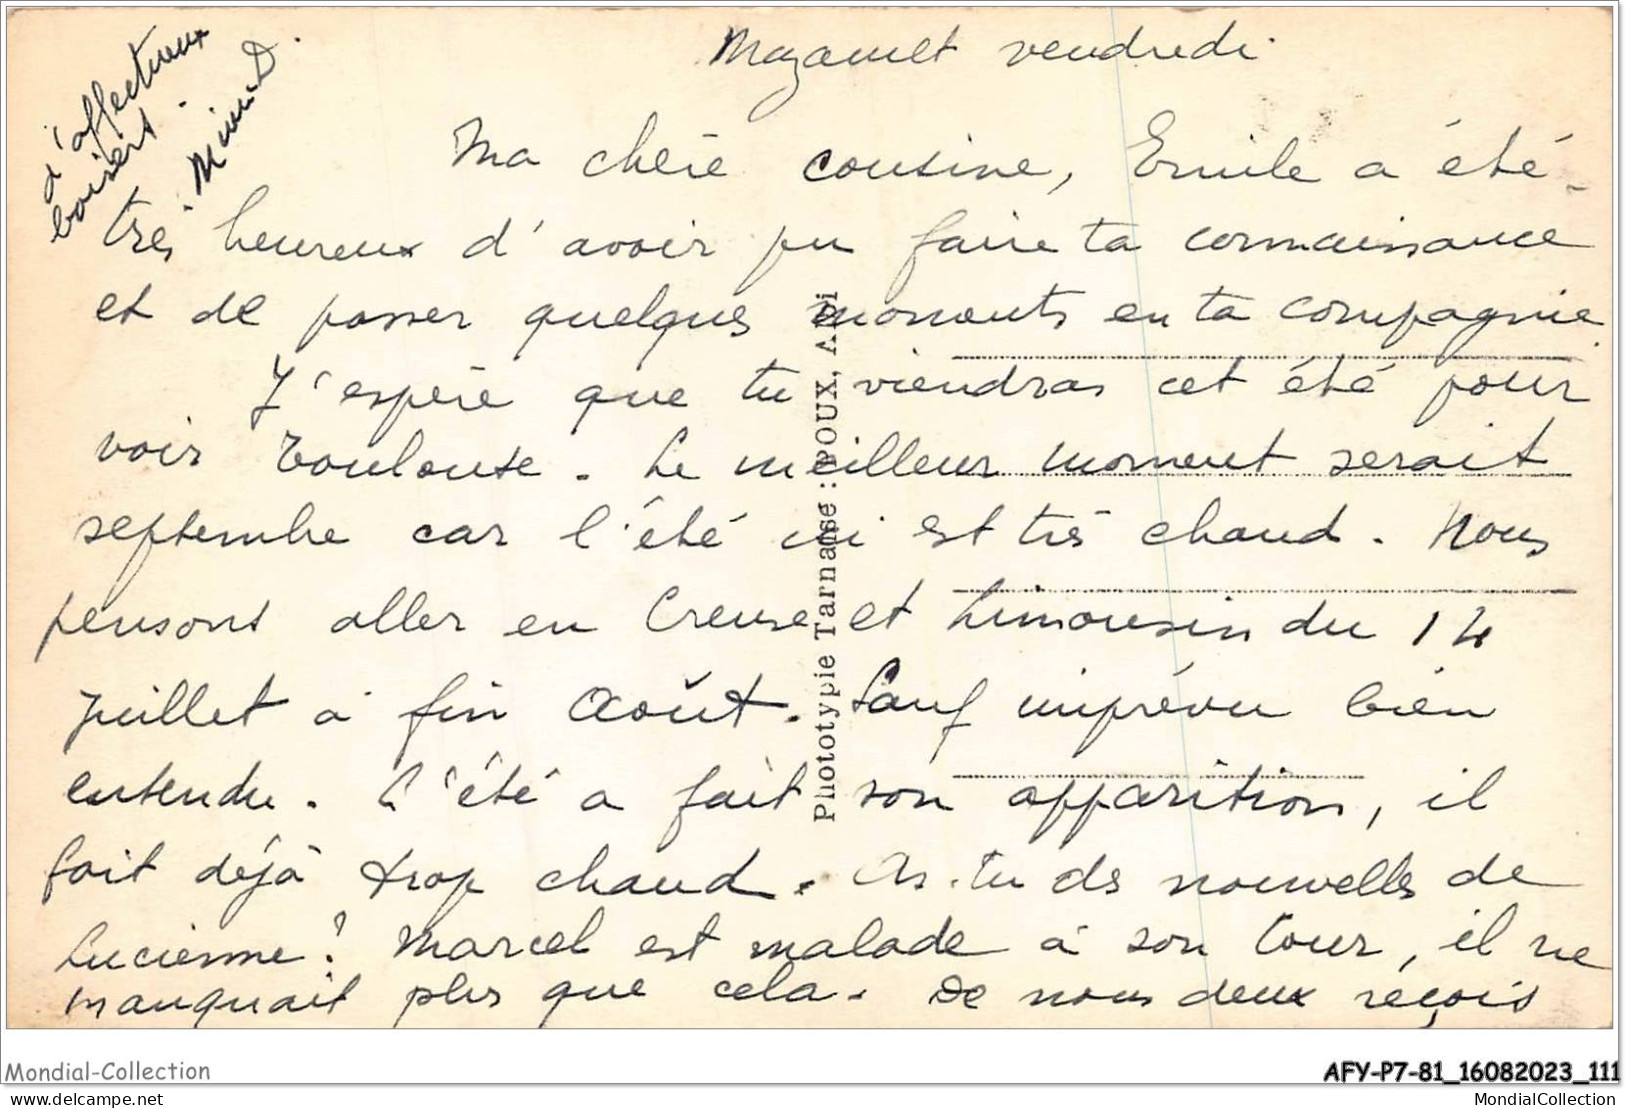 Mazamet vendredi
Ma chère cousine, Emile a été
très heureux d'avoir pu faire ta connaissance
et de passer quelques moments en ta compagnie.
J'espère que tu viendras cet été pour
voir Toulouse. Le meilleur moment serait
septembre car l'été ici est très chaud. Nous
pensons aller en Creuse et Limousin du 14
juillet à fin Août. Sauf imprévu bien
entendu. L'été a fait son apparition, il
fait déjà trop chaud. As-tu des nouvelles de
Lucienne? Marcel est malade à son tour, il ne
manquait plus que cela. De nous deux reçois
d'affectueux
baisers.
Mimi D.
Phototypie Tarnaise : POUX, Albi
Mondial-Collection
AFY-P7-81_16082023_111
delcampe.net
MondialCollection